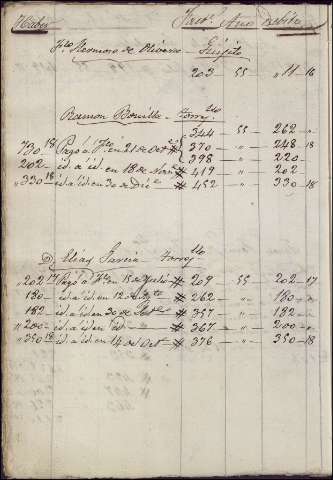 Haber Año Debito
Fco Hermoso de Olivera - Guijito
203 55 " 11 - 16
Ramon Bonilla - torng
344 - 55 - 262 - "
730 18 Pagó a Fco en 21 de Oct # 370 - " - 248 - 18
398 - " - 220 -
202 - id. a id en 18 de Nove # 419 - " - 202 -
" 330 18 id. a id en 30 de Dic # 452 - " - 330 - 18
Elias Garcia - torng
" 202 17 Pagó a Fco en 15 de Julio # 209 - 55 - 202 - 17
180 - id. a id en 12 de Agto # 262 - " - 180 - "
182 id a id en 30 de Set # 357 - " - 182 - "
" 200 - id. a id en id # 367 - " - 200 - "
" 350 18 id. a id en 14 de Oct # 376 - " - 350 - 18